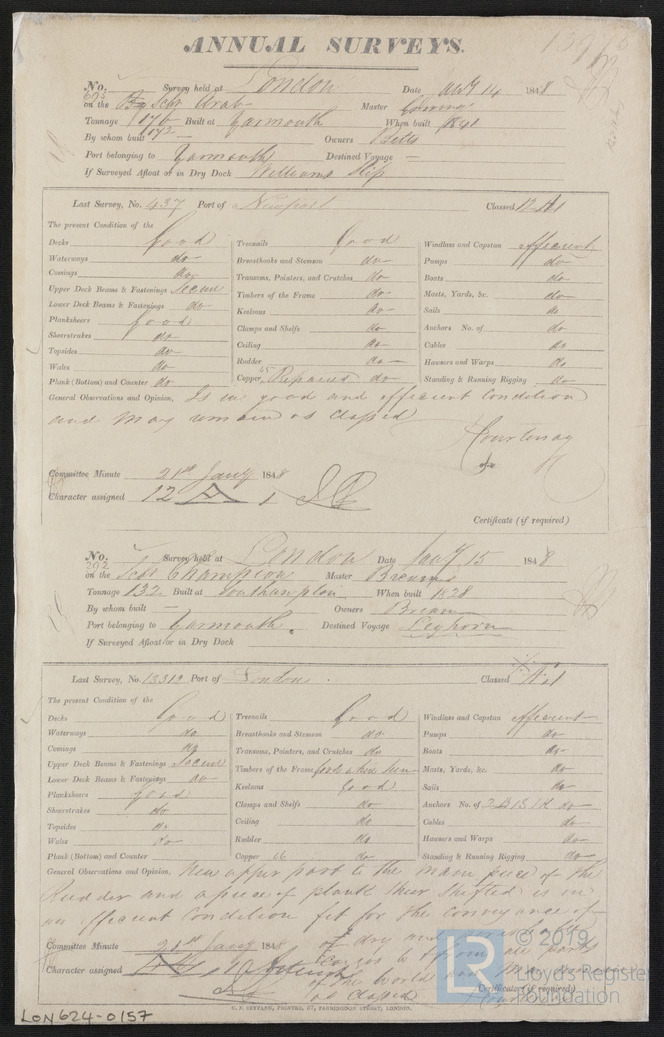 ANNUAL SURVEYS.
No. Survey held at London Date 14 1848
on the Schr Arab Master
Tonnage 176 Built at Yarmouth When built 1840
172
By whom built — Owners Betts
Port belonging to Yarmouth Destined Voyage —
If Surveyed Afloat or in Dry Dock Williams Slip
Last Survey, No. 437 Port of Newport Classed 12 A1
The present Condition of the
Decks Good
Waterways do
Comings do
Upper Deck Beams & Fastenings Secure
Lower Deck Beams & Fastenings do
Planksheers Good
Sheerstrakes do
Topsides do
Wales do
Plank (Bottom) and Counter do
Treenails Good
Breasthooks and Stemson do
Transoms, Pointers, and Crutches do
Timbers of the Frame do
Keelsons do
Clamps and Shelfs do
Ceiling do
Rudder do
Copper 45 Repaired do
Windlass and Capstan efficient
Pumps do
Boats do
Masts, Yards, &c. do
Sails do
Anchors No. of do
Cables do
Hawsers and Warps do
Standing & Running Rigging do
General Observations and Opinion, Is in good and efficient Condition
and may remain as Classed
Courtenay
Committee Minute 21st Jany 1848
Character assigned 12 A 1
Certificate (if required)
No. Survey held at London Date Jany 15 1848
292
on the Schr Champion Master
Tonnage 132 Built at Southampton When built 1828
By whom built — Owners
Port belonging to Yarmouth. Destined Voyage Leghorn
If Surveyed Afloat or in Dry Dock
Last Survey, No. 13312 Port of London Classed
The present Condition of the
Decks Good
Waterways do
Comings do
Upper Deck Beams & Fastenings Secure
Lower Deck Beams & Fastenings do
Planksheers Good
Sheerstrakes do
Topsides do
Wales do
Plank (Bottom) and Counter
Treenails Good
Breasthooks and Stemson do
Transoms, Pointers, and Crutches do
Timbers of the Frame Good where seen
Keelsons Good
Clamps and Shelfs do
Ceiling do
Rudder do
Copper do
Windlass and Capstan efficient
Pumps do
Boats do
Masts, Yards, &c. do
Sails do
Anchors No. of 2 B 1 S 1 K do
Cables do
Hawsers and Warps do
Standing & Running Rigging do
General Observations and Opinion, New upper part to the main piece of the
Rudder and a piece of plank near shifted is in
an efficient Condition fit for the conveyance of
dry and
Cargoes to & from all parts
of the World and may
as Classed
Committee Minute 21st Jany 1848
Character assigned
Certificate (if required)
LON624-0157
© 2019
Lloyd's Register
Foundation
LR